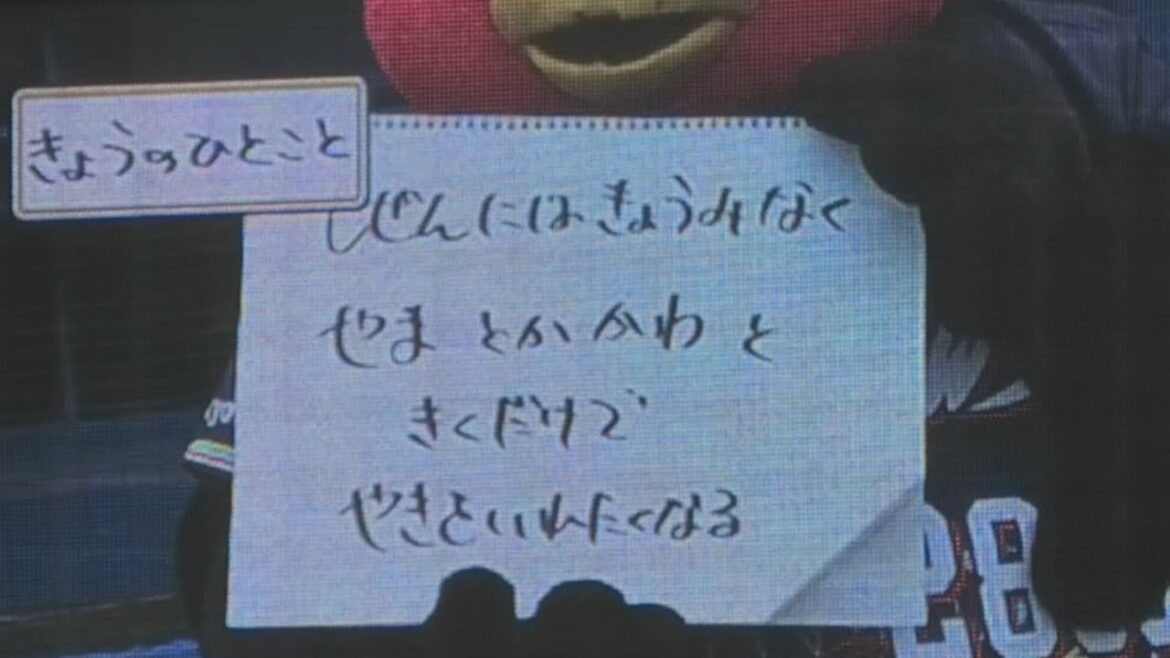 きょうのひとこと
じぜんにはきょうみなく
やま とか かわ と
きくだけで
やきといれたくなる